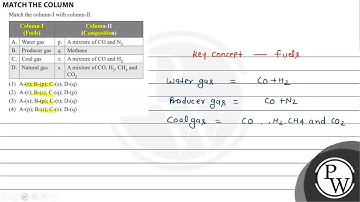 MATCH THE COLUMN
Match the column-I with column-II.
Column-I (Fuels) Column-II (Composition)
A. Water gas p. A mixture of CO and N₂
B. Producer gas q. Methane
C. Coal gas r. A mixture of CO and H₂
D. Natural gas s. A mixture of CO, H₂, CH₄ and CO₂
(1) A-(r); B-(p); C-(s); D-(q)
(2) A-(r); B-(s); C-(q); D-(p)
(3) A-(s); B-(p); C-(r); D-(q)
(4) A-(p); B-(r); C-(s); D-(q)
Key concept — fuels
Water gas = CO + H₂
Producer gas = CO + N₂
Coal gas = CO , H₂, CH₄ and CO₂
P
W